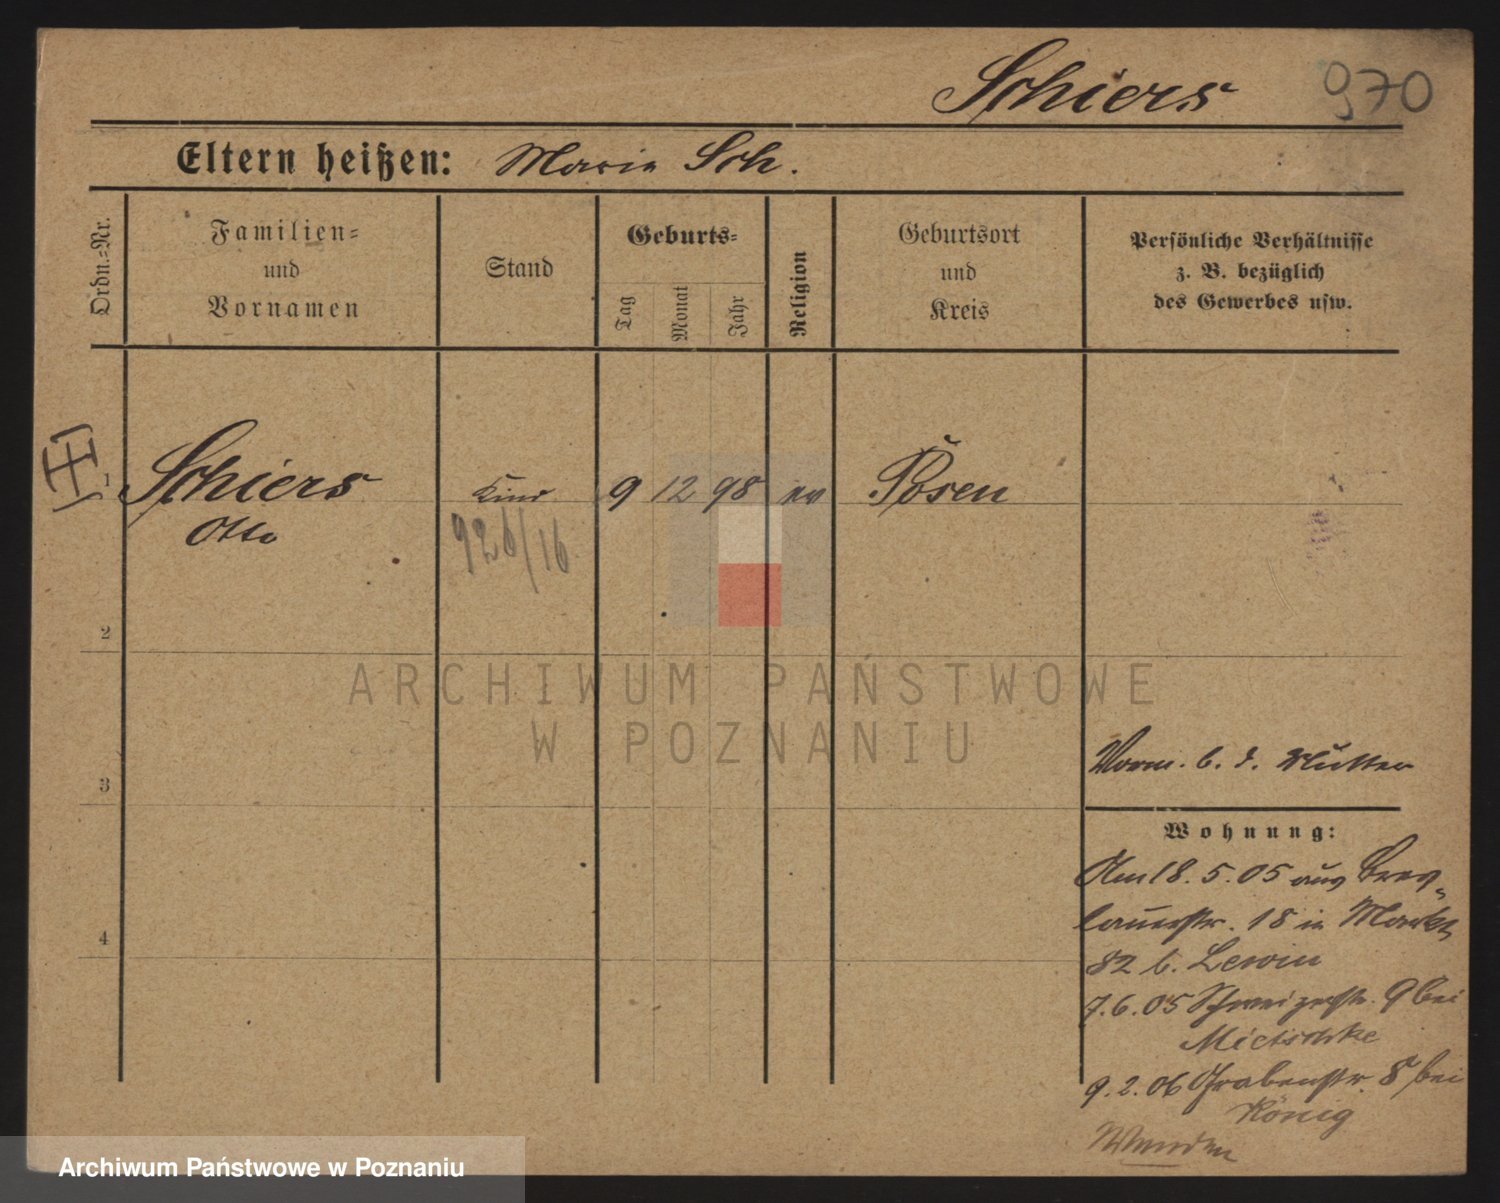 Schiers 970
Eltern heißen: Marie Sch.
Ordn.-Nr.
Familien-
und
Vornamen
Stand
Geburts-
Tag
Monat
Jahr
Religion
Geburtsort
und
Kreis
Persönliche Verhältnisse
z. B. bezüglich
des Gewerbes usw.
1 Schiers Kind 9 12 98 ev Posen
Otto
926/16
2
ARCHIWUM PAŃSTWOWE
W POZNANIU
3
Vorm. b. d. Mutter
Wohnung:
Am 18. 5. 05 aus Bres-
lauerstr. 18 in Markt
82 b. Lewin
7. 6. 05 Schweizerstr. 9 bei
Mietschke
4
9. 2. 06 Grabenstr. 8 bei
König
Wenden
Archiwum Państwowe w Poznaniu